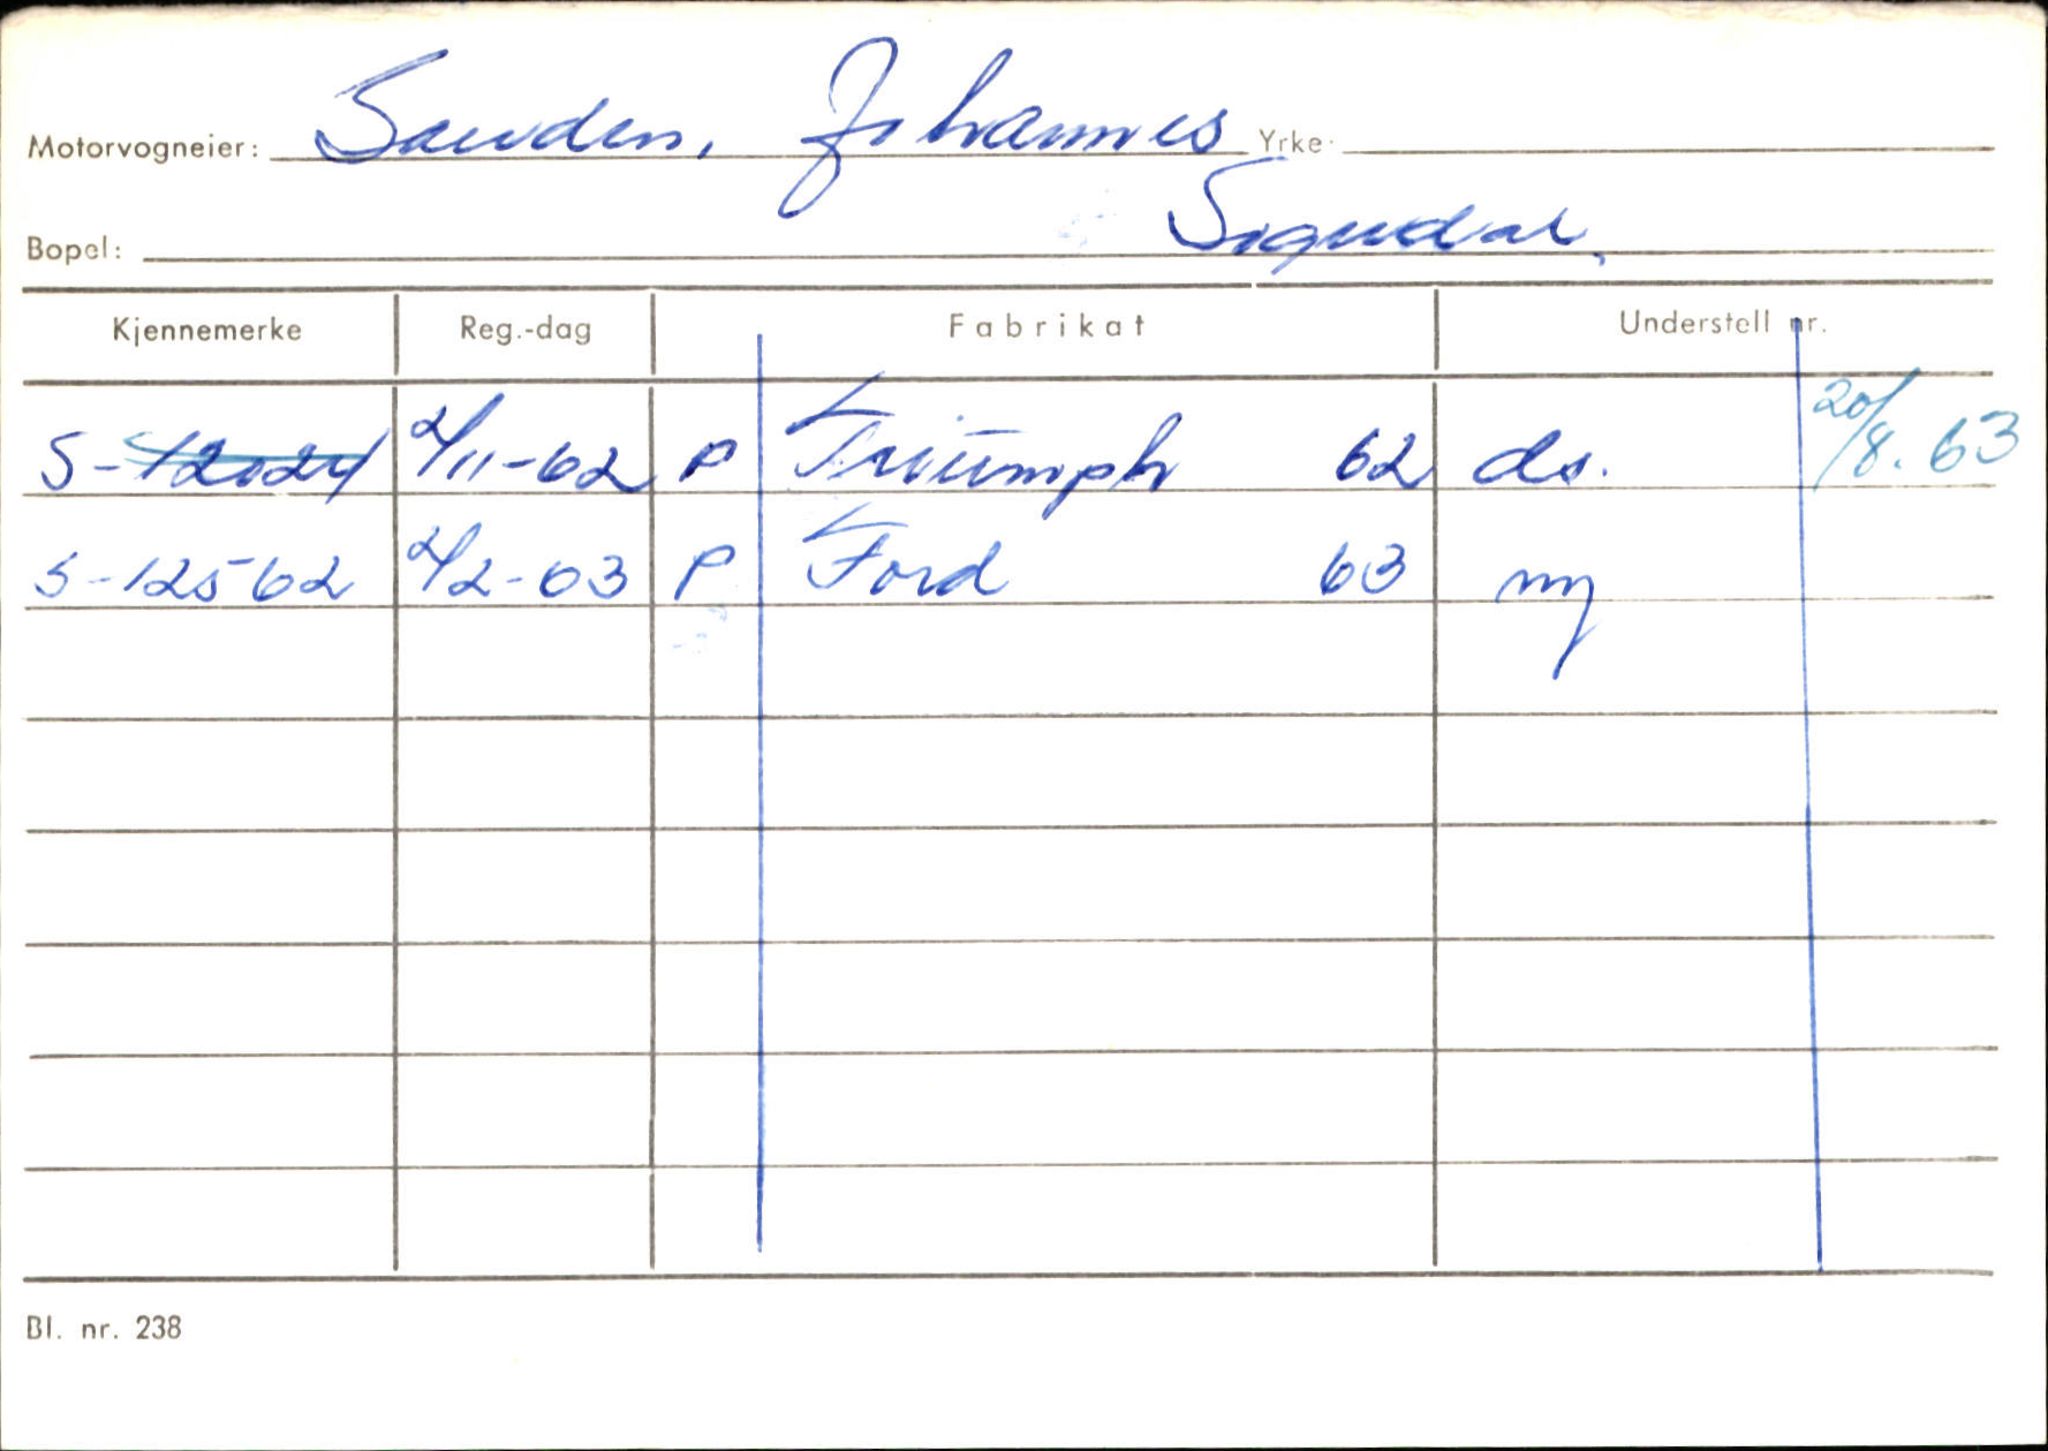 Motorvogneier: Sanden, Johannes Yrke:
Bopel: Sogndal.
Kjennemerke Reg.-dag Fabrikat Understell nr.
S-12024 2/11-62 P Triumph 62 do. 20/8.63
S-12562 2/2-63 P Ford 63 ny
Bl. nr. 238